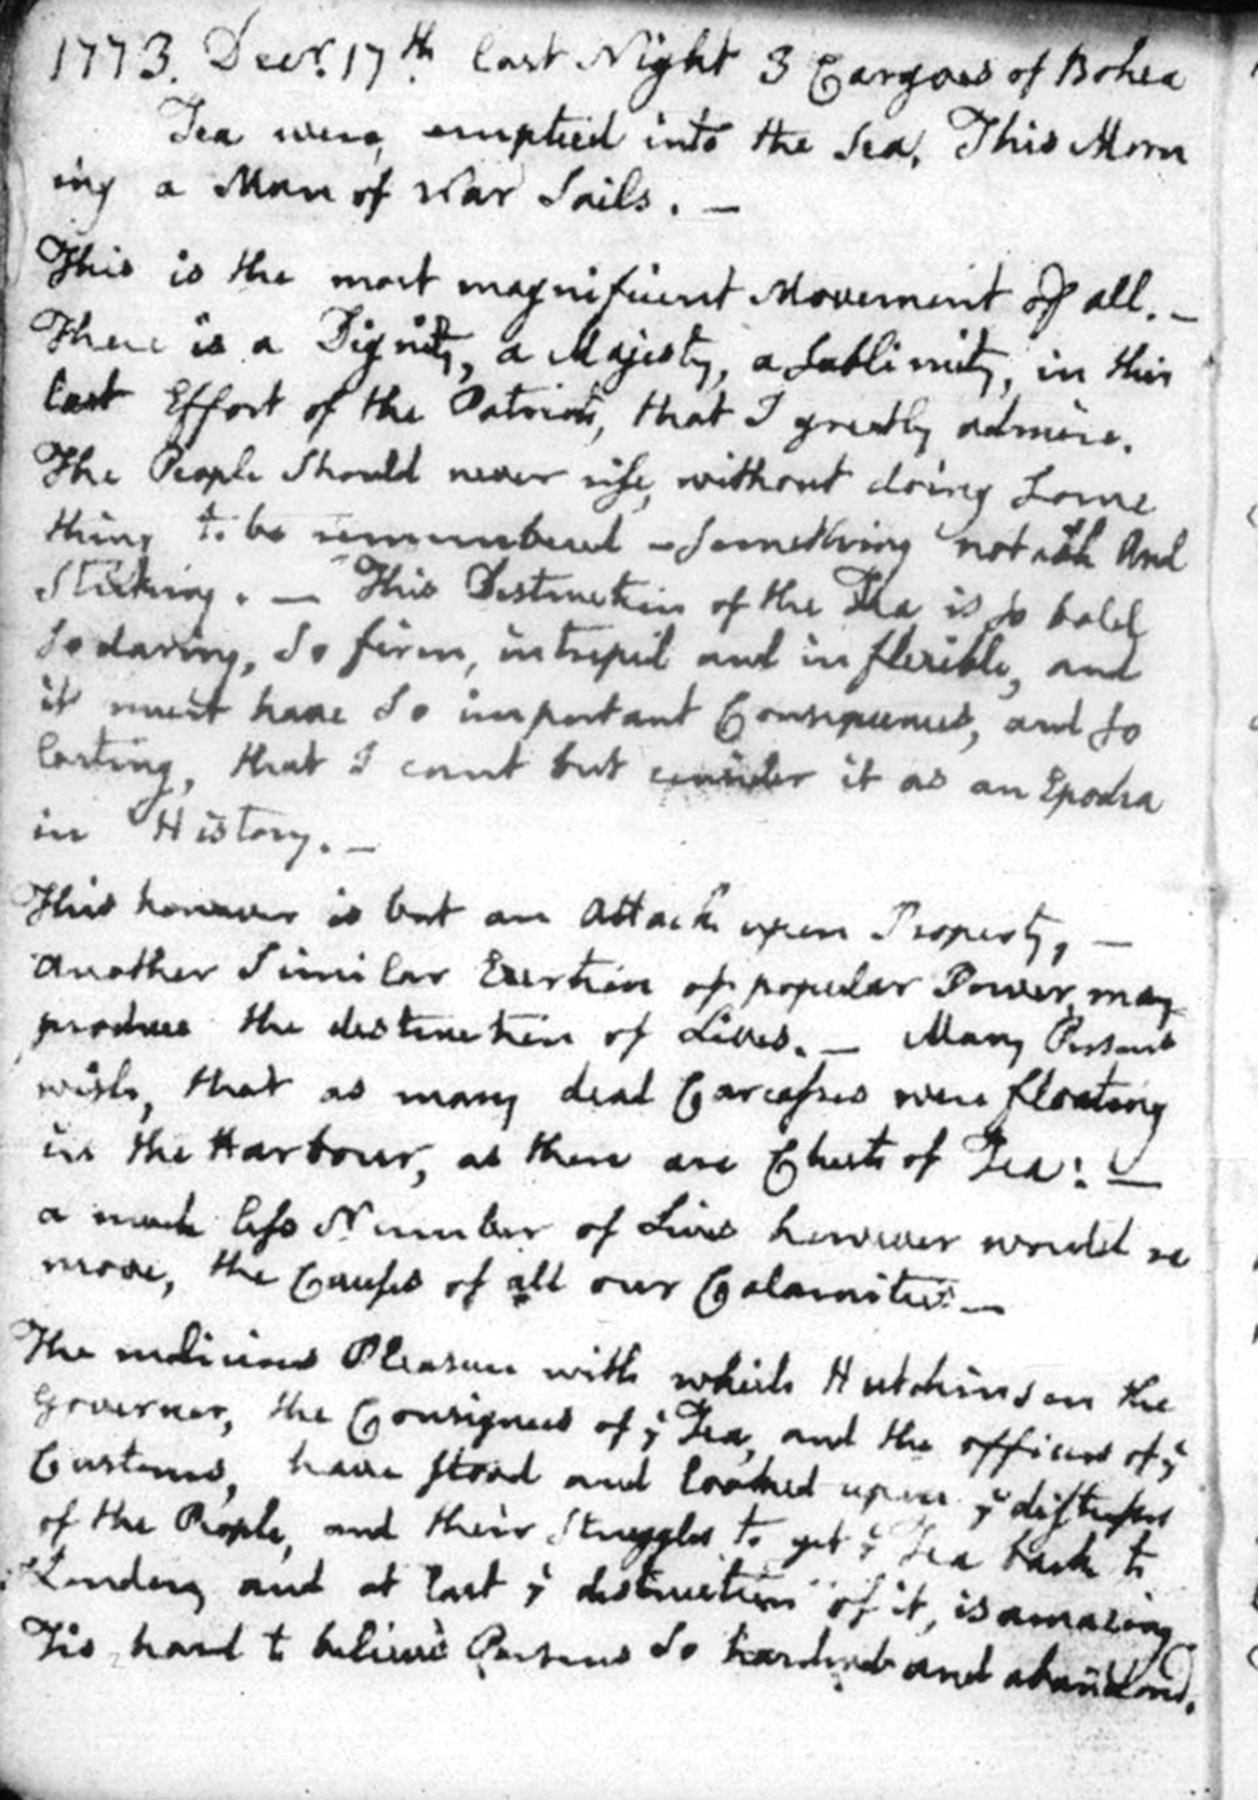 1773. Decr. 17th. last Night 3 Cargoes of Bohea
Tea were, emptied into the Sea. This Morn
ing a Man of War Sails. —
This is the most magnificent Movement of all. —
There is a Dignity, a Majesty, a Sublimity, in this
last Effort of the Patriots, that I greatly admire.
The People should never rise, without doing some
thing to be remembered — something notable And
striking. — This Destruction of the Tea is so bold
so daring, so firm, intrepid and inflexible, and
it must have so important Consequences, and so
lasting, that I cant but consider it as an Epocha
in History. —
This however is but an Attack upon Property. —
Another similar Exertion of popular Power, may
produce the destruction of Lives. — Many Persons
wish, that as many dead Carcasses were floating
in the Harbour, as there are Chests of Tea: —
a much less Number of Lives however would re
move, the Causes of all our Calamities. —
The malicious Pleasure with which Hutchinson the
Governor, the Consignees of ye Tea, and the officers of ye
Customs, have stood and looked upon ye distresses
of the People, and their Struggles to get ye Tea back to
London, and at last ye destruction of it, is amazing
Tis hard to believe Persons so hardened and abandoned.